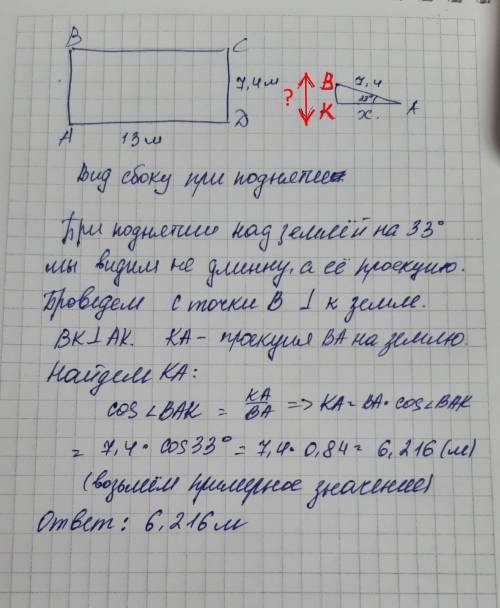 B C
7,4м
A D
13м
? B 7,4
K 33° A
x
Вид сбоку при поднятие
При поднятии над землёй на 33°
мы видим не длинну, а её проекцию.
Проведем с точки B ⊥ к земле.
BK⊥AK. KA - проекция BA на землю.
Найдем KA:
cos∠BAK = KA/BA => KA = BA·cos∠BAK
= 7,4·cos33° = 7,4·0,84 = 6,216 (м)
(возьмём примерное значение)
Ответ: 6,216м